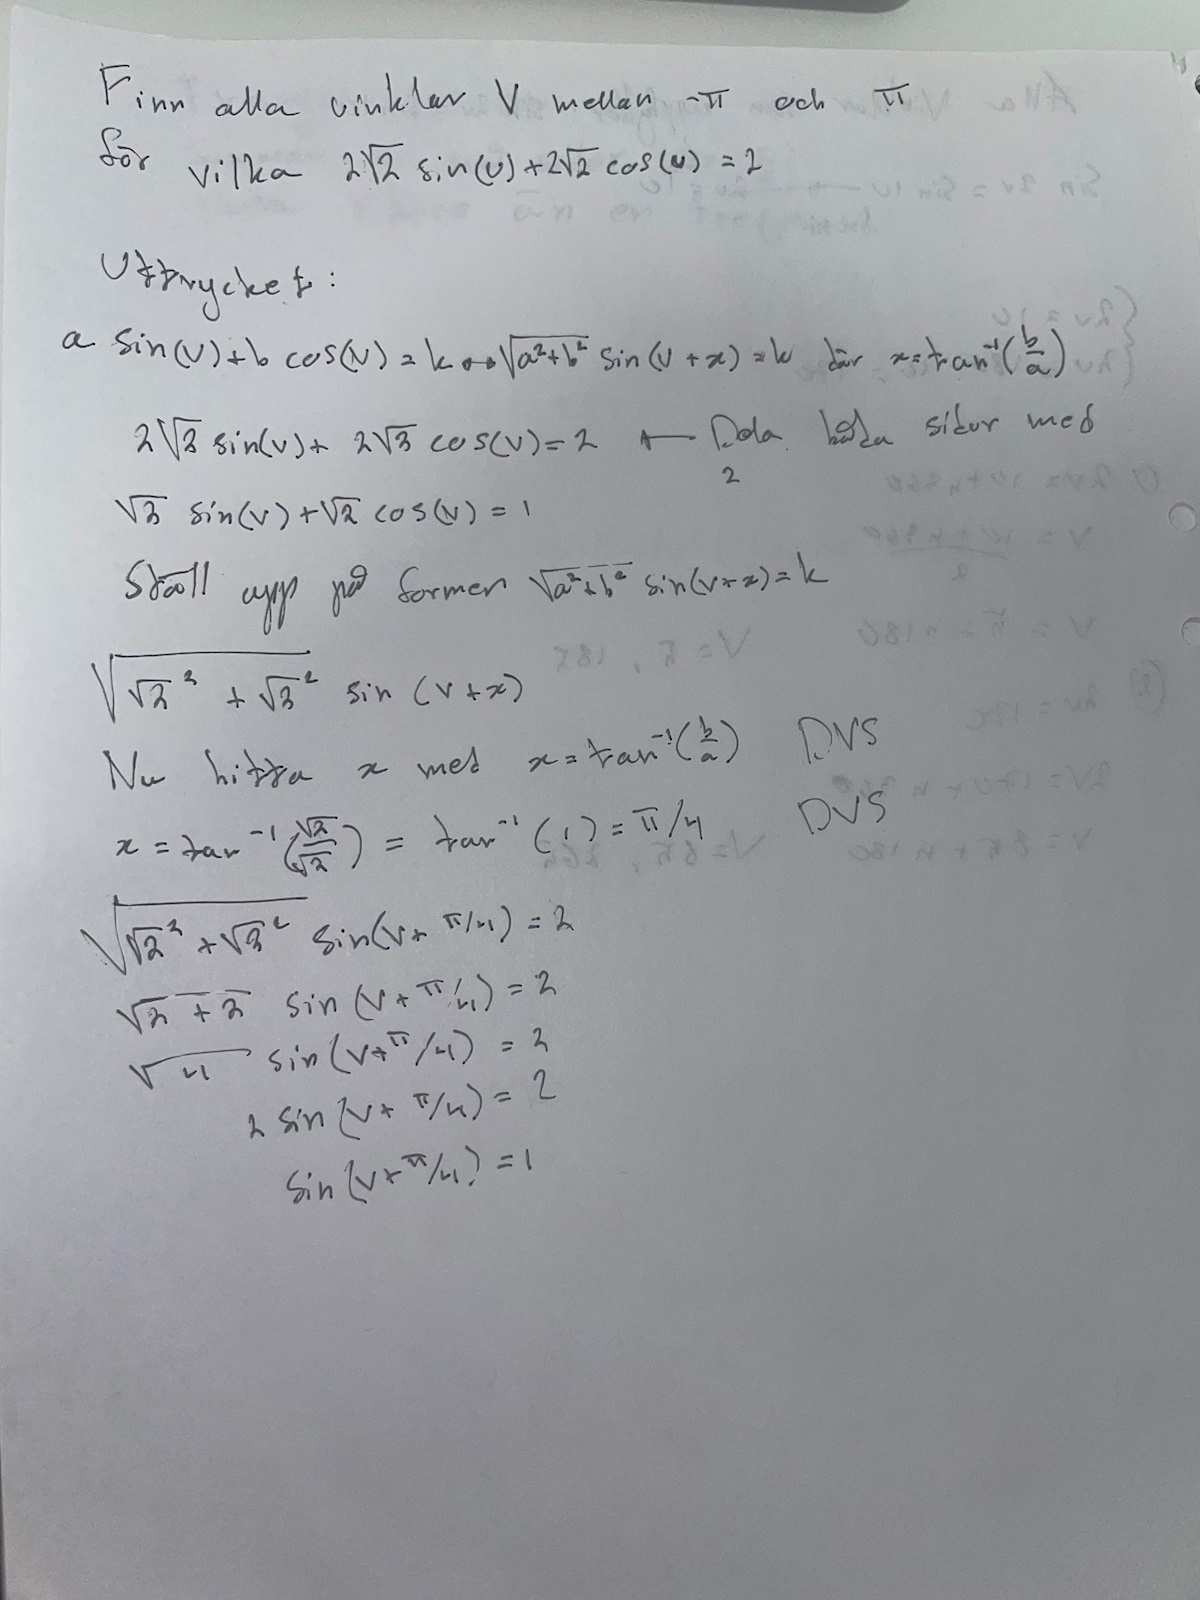 Finn alla vinklar V mellan -π och π
för vilka 2√2 sin(v)+2√2 cos(v) = 2
Uttrycket:
a sin(v)+b cos(v) = k ↔ √a²+b² sin(v+x) = k där x=tan⁻¹(b/a)
2√2 sin(v)+ 2√2 cos(v)=2 ← Dela båda sidor med 2
√2 sin(v)+√2 cos(v) = 1
Ställ upp på formen √a²+b² sin(v+x)=k
√(√2² + √2²) sin (v+x)
Nu hitta x med x=tan⁻¹(b/a) DVS
x = tan⁻¹(√2/√2) = tan⁻¹(1)=π/4 DVS
√(√2² + √2²) sin(v+ π/4) = 2
√2+2 sin (v+π/4) = 2
√4 sin(v+π/4) = 2
2 sin(v+ π/4) = 2
sin(v+π/4) = 1